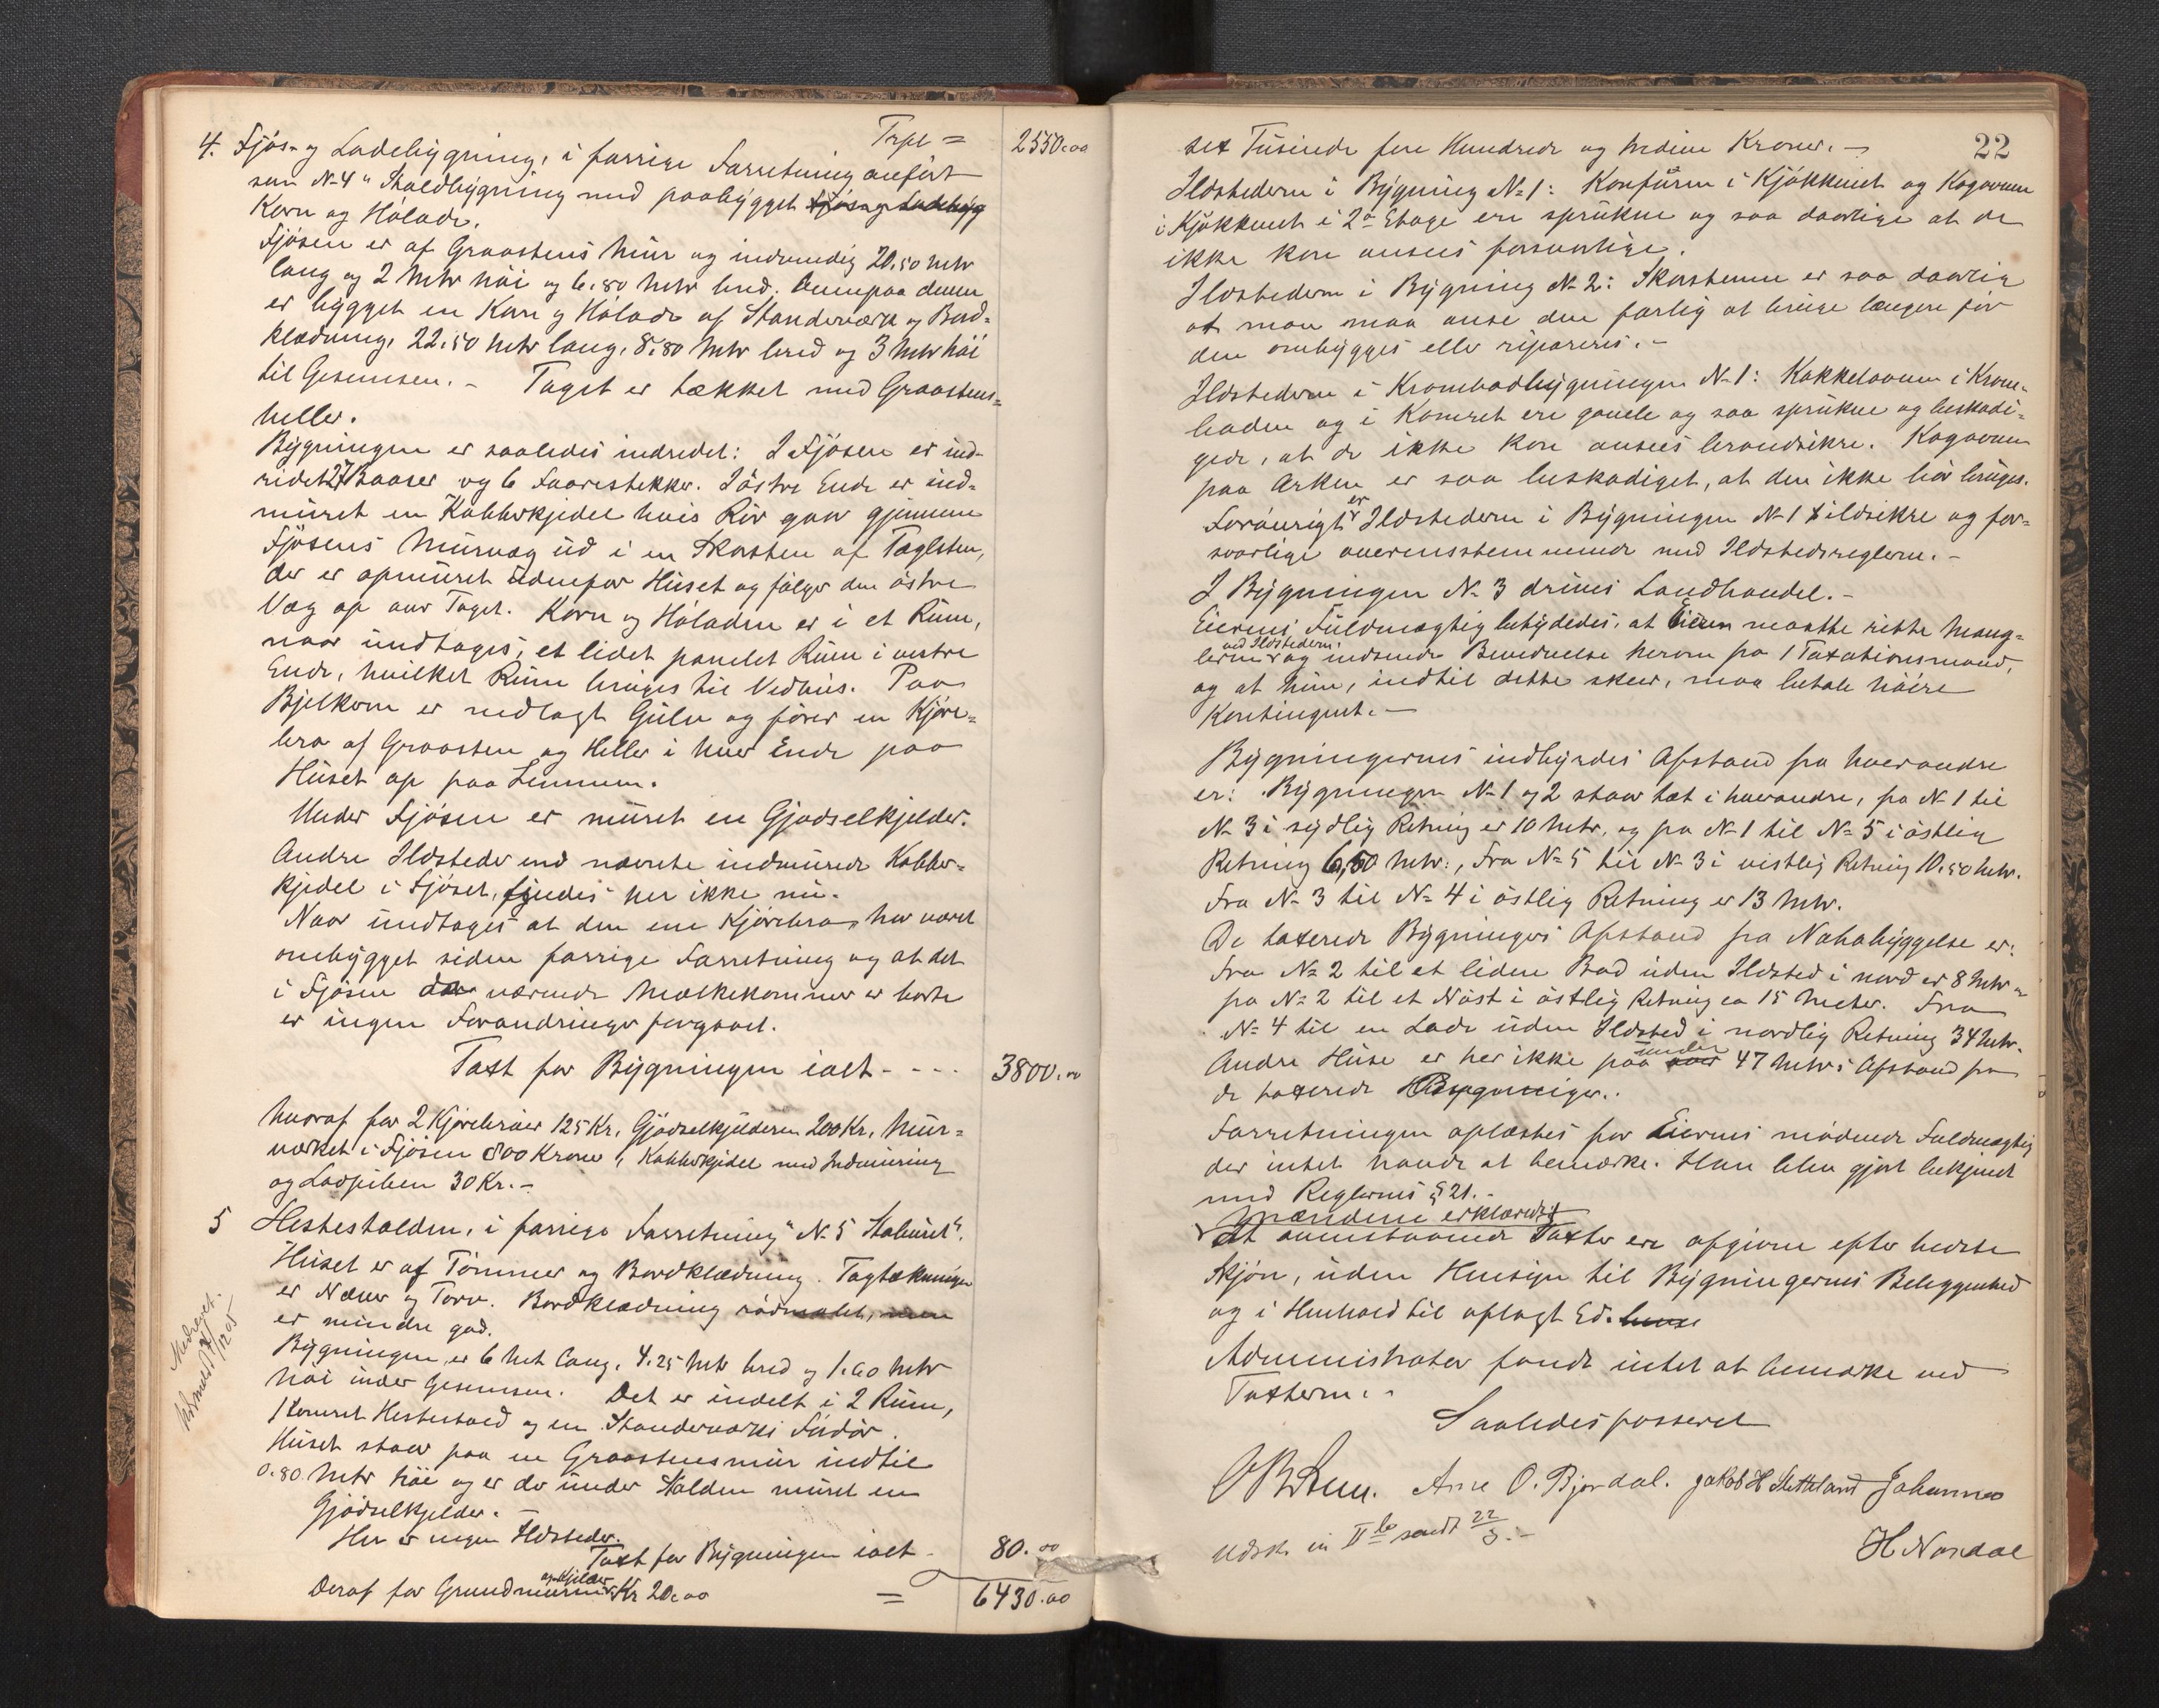 Trpt = 2550.00
4. Fjøs- og Ladebygning, i forrige Forretning anført
som N-4 "Staldbygning med paabygget Fjøs og Ladebyg
Korn og Hølade.
Fjøsen er af Graastens Mür og indvendig 20.50 Mtr
lang og 2 Mtr høi og 6.80 Mtr bred. Ovenpaa denne
er bygget en Korn og Hølade af Standerværk og Bord=
klædning, 22.50 Mtr lang, 8.80 Mtr bred og 3 Mtr høi
til Gesimsen. - Taget er tækket med Graastens=
heller.
Bygningen er saaledes indredet: I Fjøsen er ind-
redet 27 Baaser og 6 Faarestekker. I østre Ende er ind=
müret en Kobberkjedel hvis Rör gaar gjennem
Fjøsens Mürvæg üd i en Skorsten af Teglsten,
der er opmüret üdenfor Hüset og følger den østre
Væg op over Taget. Korn og Høladen er i et Rüm,
naar ündtages, et lidet panelet Rüm i vestre
Ende, hvilket Rüm brüges til Vedhüs. Paa
Bjelkerne er nedlagt Gülv og fører en Kjøre=
bro af Graasten og Heller i hver Ende paa
Hüset op paa Lemmen.
Under Fjøsen er müret en Gjødselkjelder.
Andre Ildsteder end nævnte indmürede Kobber=
kjedel i Fjøset, findes her ikke nü.
Naar ündtages at den ene Kjørebro har været
ombygget siden forrige Forretning og at det
i Fjøsen værende Mælkekammer er borte
er ingen Forandringer foregaaet.
Taxt for Bygningen ialt - - - 3800.00
hvoraf for 2 Kjørebroer 125 Kr, Gjødselkjelderen 200 Kr, Mür=
værket i Fjøsen 800 Kroner, Kobberkjedel med Indmüring
og Ladpiben 30 Kr. -
5 Hestestalden, i forrige Forretning "N-5 Staluret".
Hüset er af Tømmer og Bordklædning. Tagtækningen
er Næver og Torv. Bordklædning rødmalet, men
er mindre god.
Bygningen er 6 Met lang, 4.25 Mtr bred og 1.60 Mtr
høi ünder Gesimsen. Det er indelt i 2 Rüm,
1 tømret Hestestald og en Standerværks
Hüset staar paa en Graastensmür indtil
0.80 Mtr høi og er der ünder Stalden müret en
Gjødselkjelder. -
Her er ingen Ildsteder.
Taxt for Bygningen ialt - 80.00
og Kjelder
Deraf for Grundmüren Kr 20.00 = 6430.00
22
sex Tüsinde fire Hundrede og tredive Kroner. -
Ildstederne i Bygning N-1: Komfüren i Kjøkkenet og Kogeovnen
i Kjøkkenet i 2den Etage ere sprükne og saa daarlige at de
ikke kan ansees forsvarlige.
Ildstederne i Bygning N-2: Skorstenen er saa daarlig
at man maa anse den farlig at brüge længere før
den ombygges eller repareres. -
Ildstederne i Krambodbygningen N-1: Kakkelovnen i Kram-
boden og i Kontoret ere gamle og saa sprükne og beskadi=
gede, at de ikke kan ansees brandsikre. Kogeovnen
paa Arken er saa beskadiget, at den ikke bør brüges.
Forøvrigt er Ildstederne i Bygningen N-1 ildsikre og for=
svarlige overensstemmende med Ildstedsreglerne. -
I Bygningen N-3 drives Landhandel. -
Eierens Füldmægtig betydedes, at Eieren maatte rette Mang=
lerne ved Ildstederne og indsende Bevidnelse herom fra 1 Taxationsmand,
og at hün, indtil dette skeer, maa betale høiere
Kontingent. -
Bygningernes indbyrdes Afstand fra hverandre
er: Bygningen N-1 og 2 staar tæt i hverandre, fra N-1 til
N-3 i sydlig Retning er 10 Mtr, og fra N-1 til N-5 i østlig
Retning 6,50 Mtr., Fra N-5 til N-3 i vestlig Retning 10.50 Mtr.
Fra N-3 til N-4 i østlig Retning er 13 Mtr.
De taxerede Bygningers Afstand fra Nabobyggelse er:
Fra N-2 til et liden Bod uden Ildsted i nord er 8 Mtr
fra N-2 til et Nøst i østlig Retning ca 15 Meter. Fra
N-4 til en Lade üden Ildsted i nordlig Retning 34 Mtr.
Andre Hüse er her ikke paa under over 47 Mtrs Afstand fra
de taxerede Bygninger.
Forretningen oplæstes for Eierens mødende Fuldmægtig
der intet havde at bemærke. Han blev gjort bekjendt
med Reglernes § 21. -
Mændene erklærede
At ovenstaaende Taxter ere afgivne efter bedste
Skjøn, üden Hensyn til Bygningernes Beliggenhed
og i Henhold til aflagt Ed.
Administrator fandt intet at bemærke ved
Taxterne. -
Saaledes passeret
Arne O. Bjordal. Jakob H Slettland Johannes
H Nordal
Udsk. in IIlo sendt 22/3. -